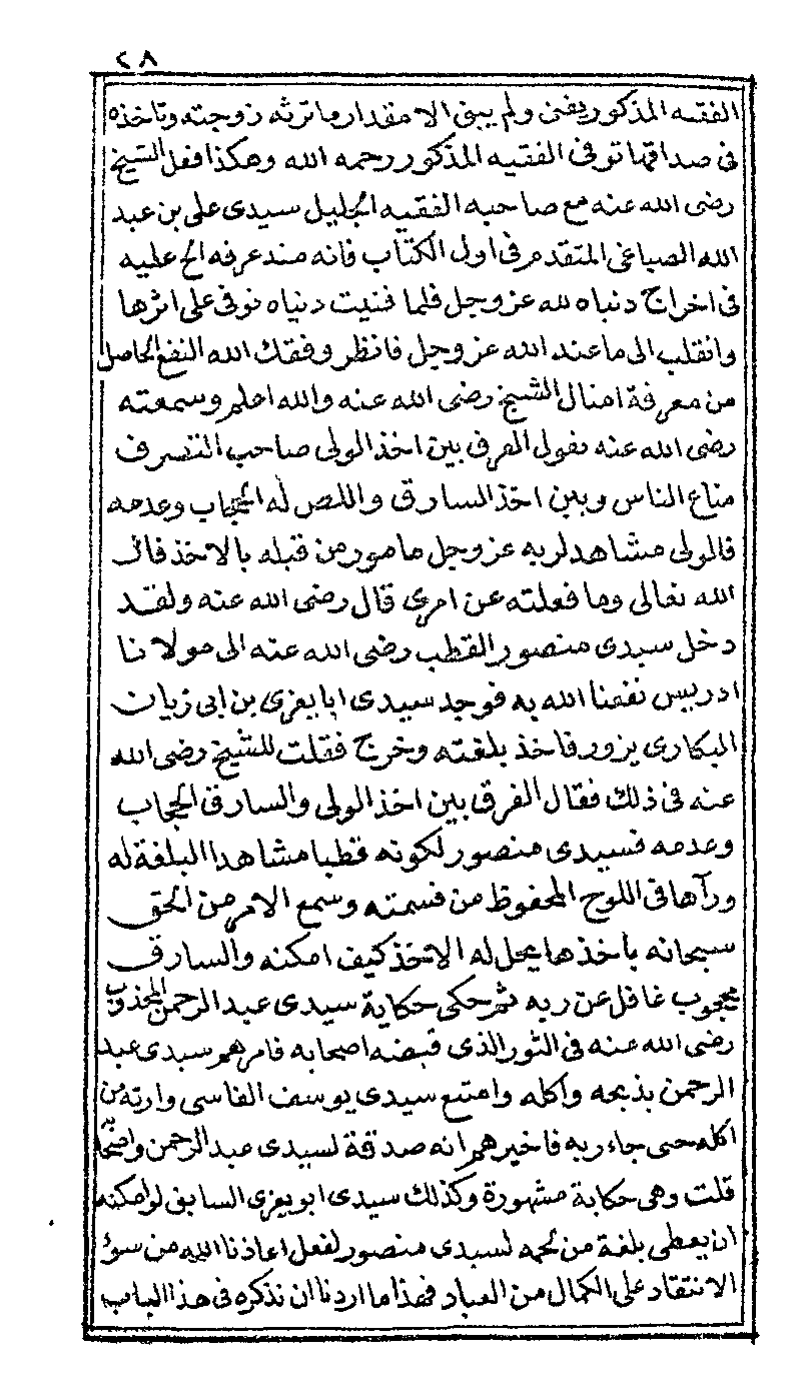 ٢٨
الفقيه المذكور يفنى ولم يبق الا مقدار ما ترثه زوجته وتاخذه
فى صداقها توفى الفقيه المذكور رحمه الله وهكذا فعل الشيخ
رضى الله عنه مع صاحبه الفقيه الجليل سيدى على بن عبد
الله الصباغى المتقدم فى اول الكتاب فانه منذ عرفه الح عليه
فى اخراج دنياه لله عز وجل فلما فنيت دنياه توفى على اثرها
وانقلب الى ما عند الله عز وجل فانظر وفقك الله النفع الحاصل
من معرفة امثال الشيخ رضى الله عنه والله اعلم وسمعته
رضى الله عنه يقول الفرق بين اخذ الولى صاحب التصرف
متاع الناس وبين اخذ السارق واللص له الحجاب وعدمه
فالولى مشاهد لربه عز وجل مامور من قبله بالاخذ قال
الله تعالى وما فعلته عن امرى قال رضى الله عنه ولقد
دخل سيدى منصور القطب رضى الله عنه الى مولانا
ادريس نفعنا الله به فوجد سيدى ابا يعزى بن ابى زيان
البكارى يزور فاخذ بلغته وخرج فقلت للشيخ رضى الله
عنه فى ذلك فقال الفرق بين اخذ الولى والسارق الحجاب
وعدمه فسيدى منصور لكونه قطبا مشاهدا البلغة له
ورآها فى اللوح المحفوظ من قسمته وسمع الامر من الحق
سبحانه باخذها يحل له الاخذ كيف امكنه والسارق
محجوب غافل عن ربه ثم حكى حكاية سيدى عبد الرحمن المجذوب
رضى الله عنه فى الثور الذى قبضه اصحابه فامرهم سيدى عبد
الرحمن بذبحه واكله وامتنع سيدى يوسف الفاسى وارثه من
اكله حتى جاء ربه فاخبرهم انه صدقة لسيدى عبد الرحمن واصحابه
قلت وهى حكاية مشهورة وكذلك سيدى ابو يعزى السابق لو امكنه
ان يعطى بلغة من لحمه لسيدى منصور لفعل اعاذنا الله من سوء
الانتقاد على الكمال من العباد فهذا ما اردنا ان نذكره فى هذا الباب